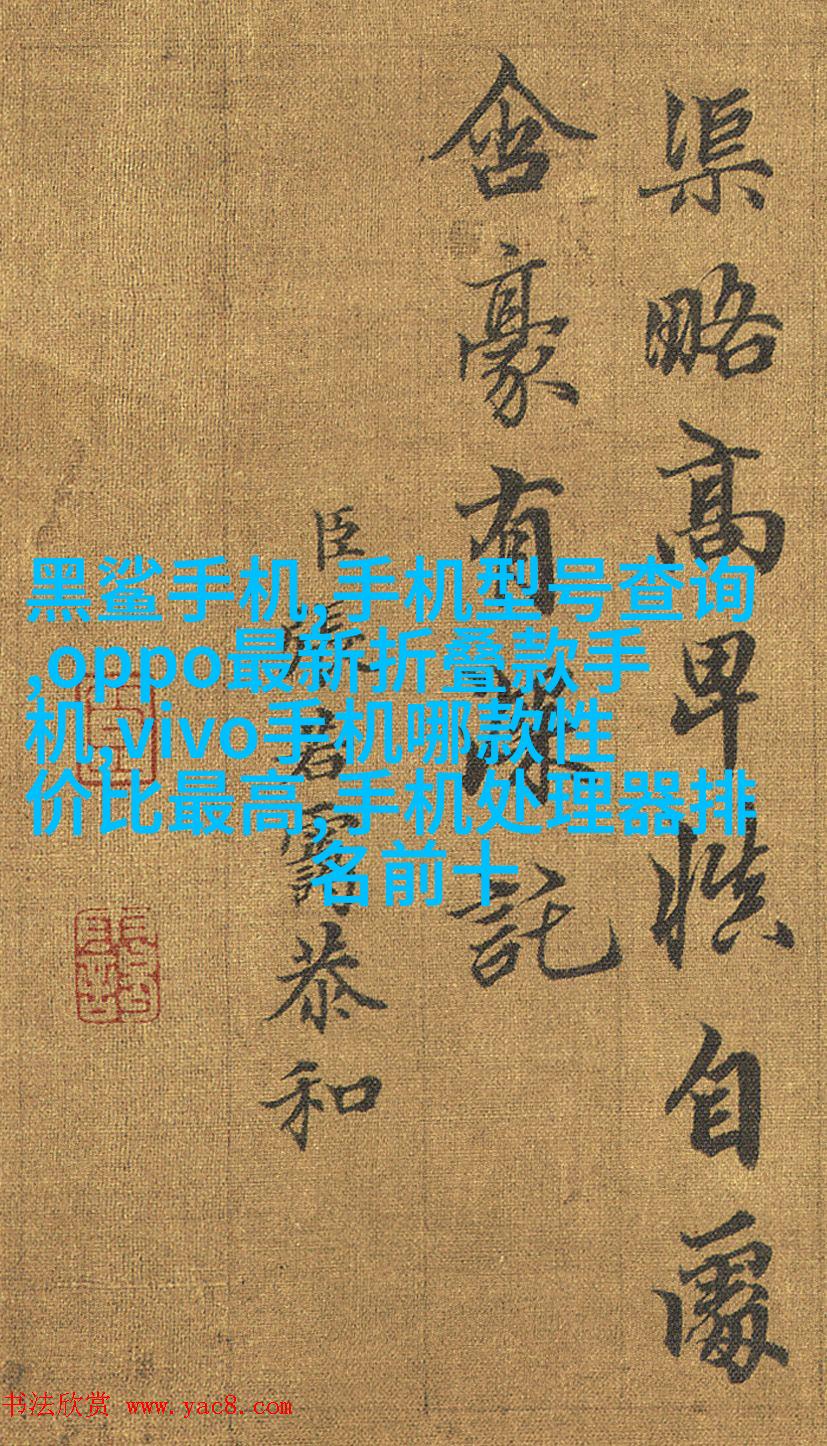 渠略髙卑慎自處
含豪有深託
臣張若靄恭和
黑鲨手机,手机型号查询
,oppo最新折叠款手
机,vivo手机哪款性
价比最高,手机处理器排
名前十
书法欣赏 www.yac8.com